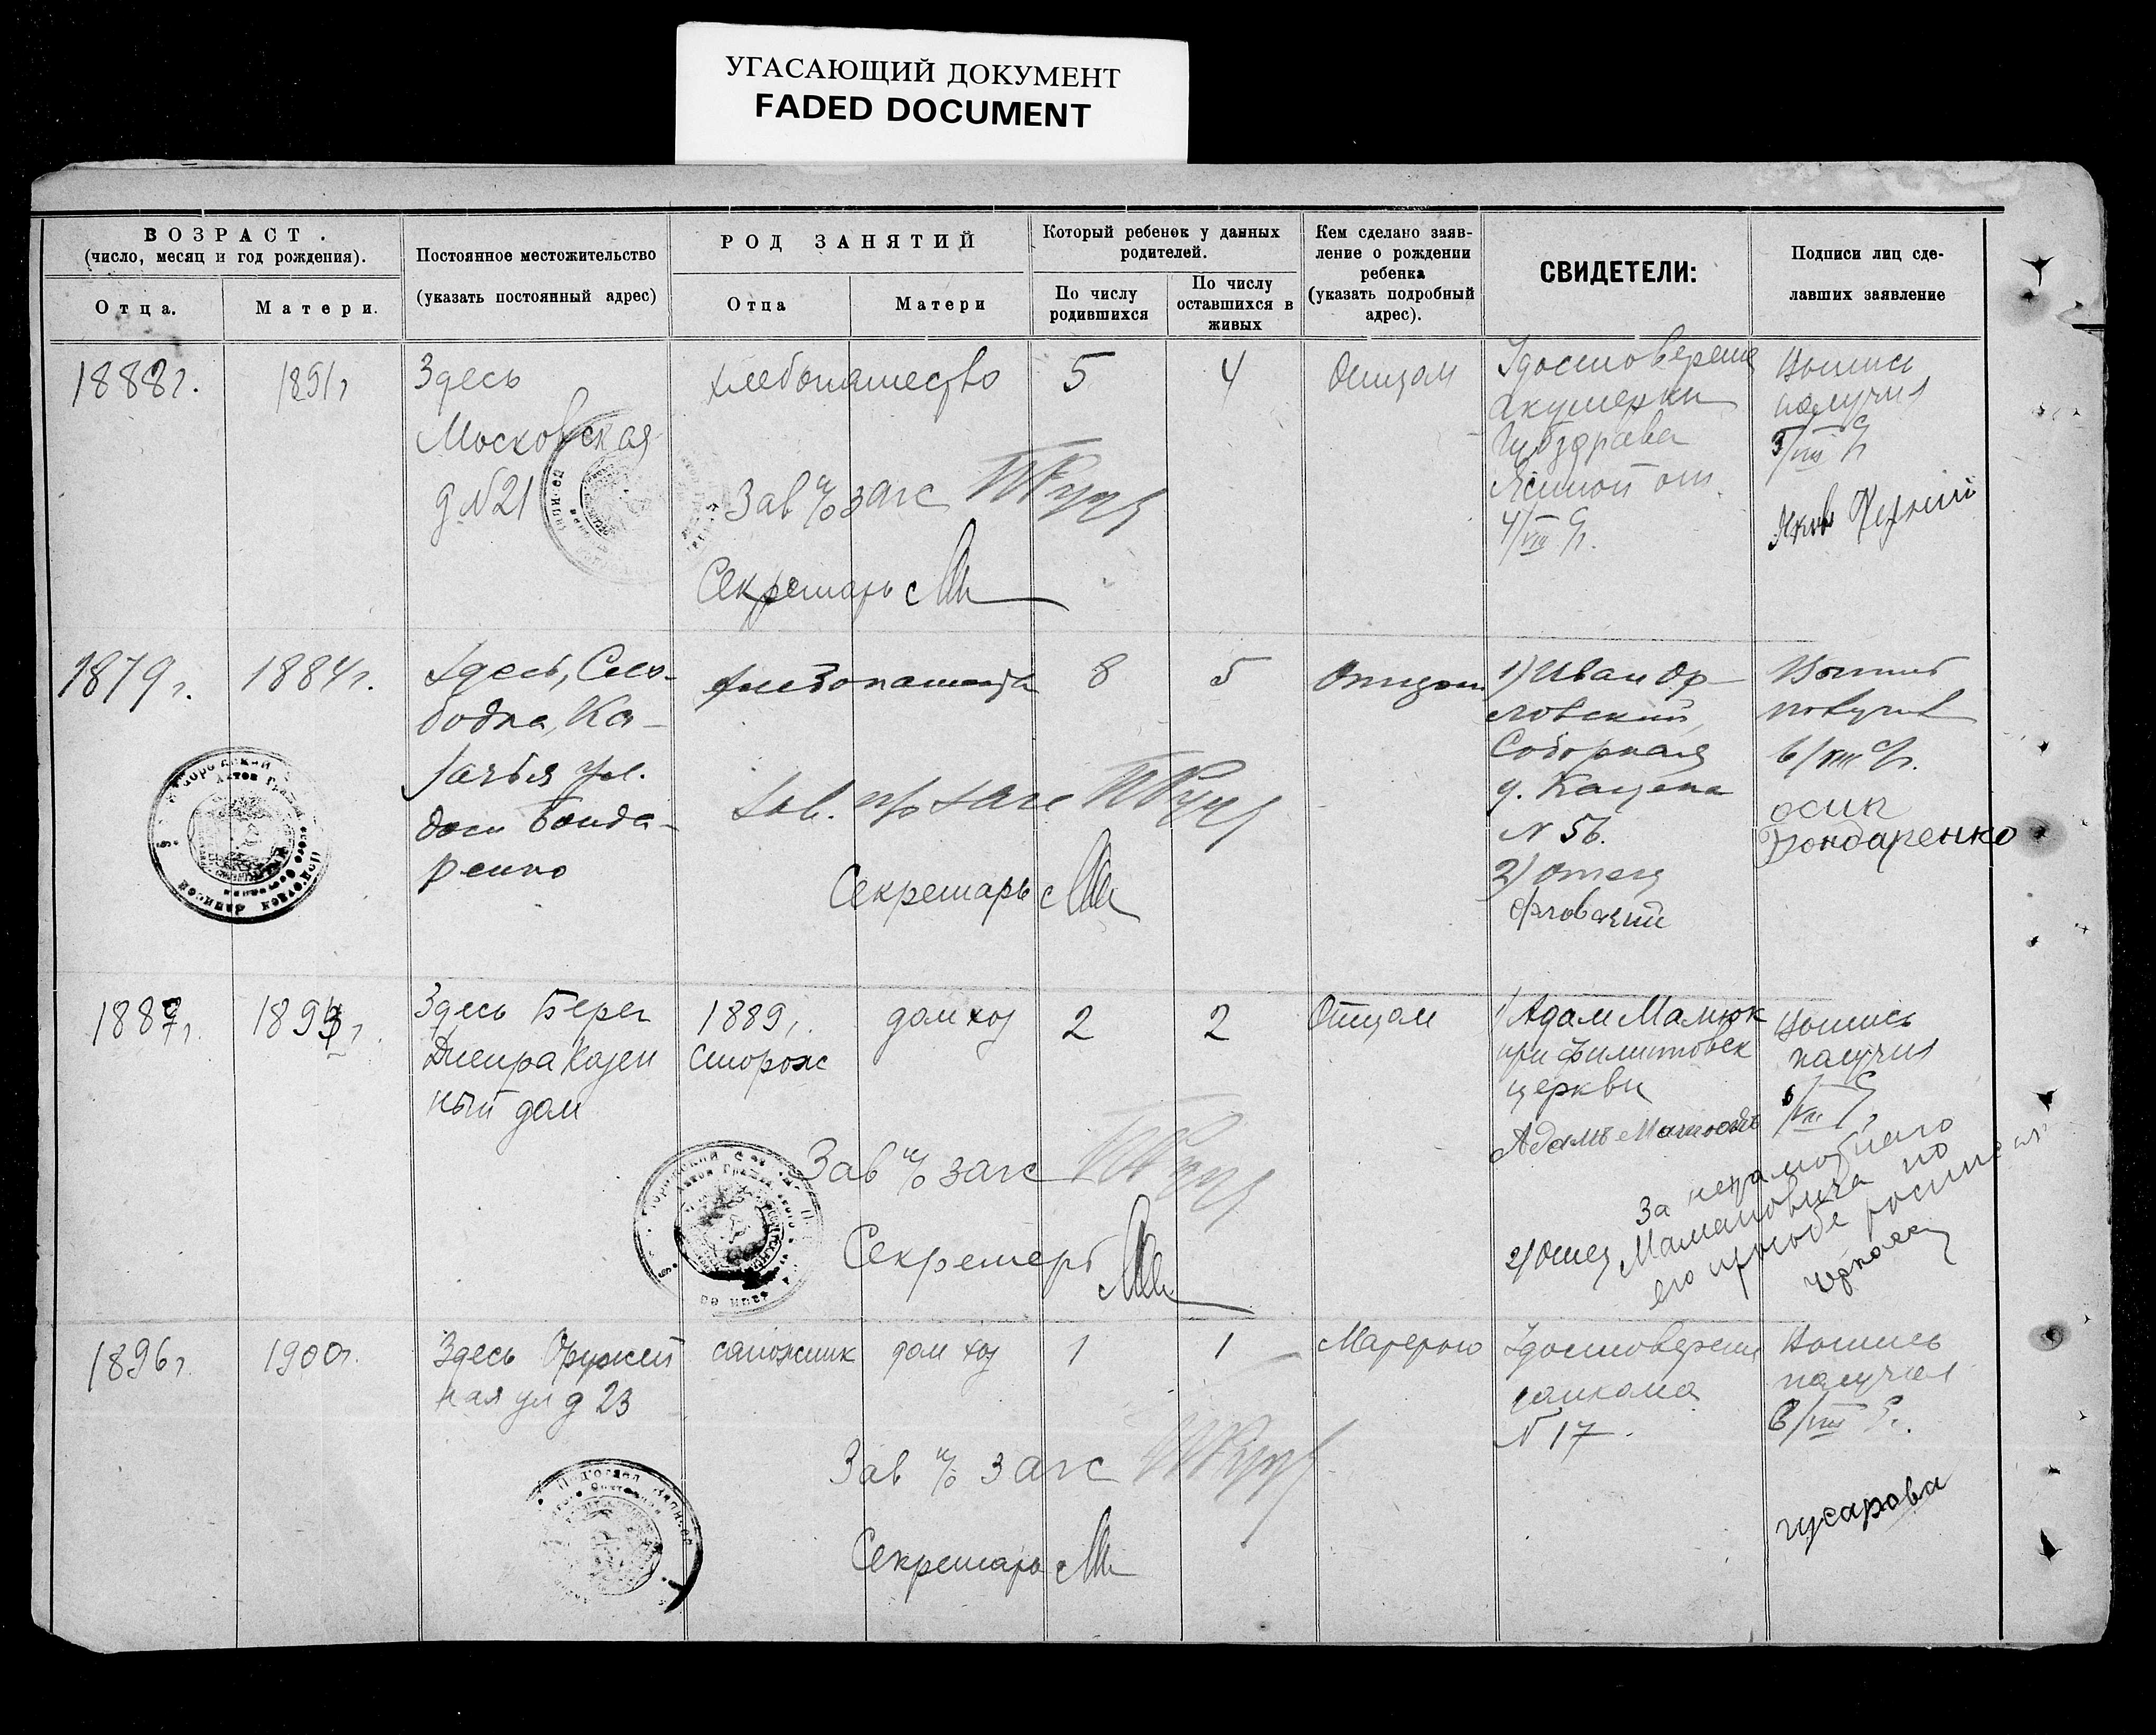 УГАСАЮЩИЙ ДОКУМЕНТ
FADED DOCUMENT
ВОЗРАСТ.
(число, месяц и год рождения).
Отца.
Матери.
Постоянное местожительство
(указать постоянный адрес)
РОД ЗАНЯТИЙ
Отца
Матери
Который ребенок у данных
родителей.
По числу
родившихся
По числу
оставшихся в
живых
Кем сделано заяв-
ление о рождении
ребенка
(указать подробный
адрес).
СВИДЕТЕЛИ:
Подписи лиц сде-
лавших заявление
1888г.
1891г
Здесь
Московская
д N21
хлебопашество
5
4
Отцом
Удостоверение
акушерки
Губздрава
от
4/VIII
Выпись
получил
5/VIII
Яков Черний
Зав п/о загс
Секретарь
1879г.
1884г.
Здесь, Сло-
бодка, Ка-
зачья ул.
дом Бонда-
ренко
хлебопашество
8
5
Отцом
1) Иван Ор-
ловский,
Соборная
д. Кацена
N 56.
2) Отец
Орловский
Выпись
получил
6/VIII
осип
Бондаренко
Зав. п/о загс
Секретарь
1887г.
1893г.
Здесь Берег
Днепра Казен
ный дом
1889г.
сторож
дом хоз
2
2
Отцом
1) Адам Малюк
при Филипповск
церкви
Адамъ
2) Отец
Выпись
получил
6/VIII
За неграмотного
Мамановича по
его просьбе
Зав п/о загс
Секретарь
1896г.
1900г.
Здесь Оружей
ная ул д 23
сапожник
дом хоз
1
1
Матерью
Удостоверение
домкома
N 17.
Выпись
получил
6/VIII
гусарова
Зав п/о загс
Секретарь